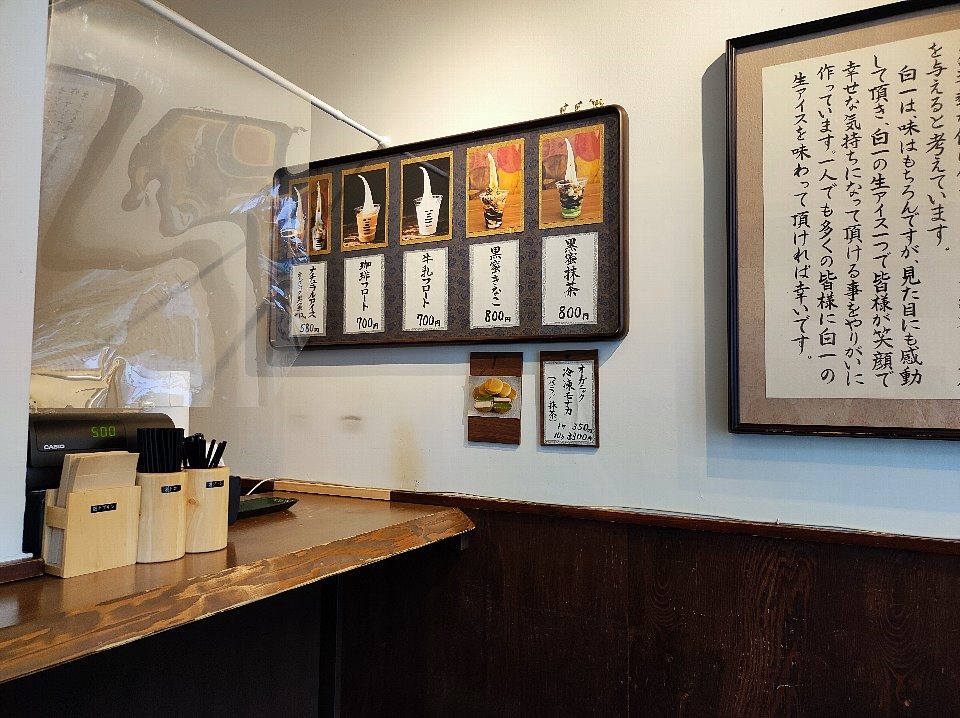 を与えると考えています。
白一は、味はもちろんですが、見た目にも感動
して頂き、白一の生アイス一つで皆様が笑顔で
幸せな気持ちになって頂ける事をやりがいに
作っています。一人でも多くの皆様に白一の
生アイスを味わって頂ければ幸いです。
黒蜜抹茶
800円
黒蜜きなこ
800円
牛乳フロート
700円
珈琲フロート
700円
ナチュラルアイス
580円
オーガニック
冷凍モナカ
(バニラ/抹茶)
1ケ 350円
10ケ 3300円
CASIO
500